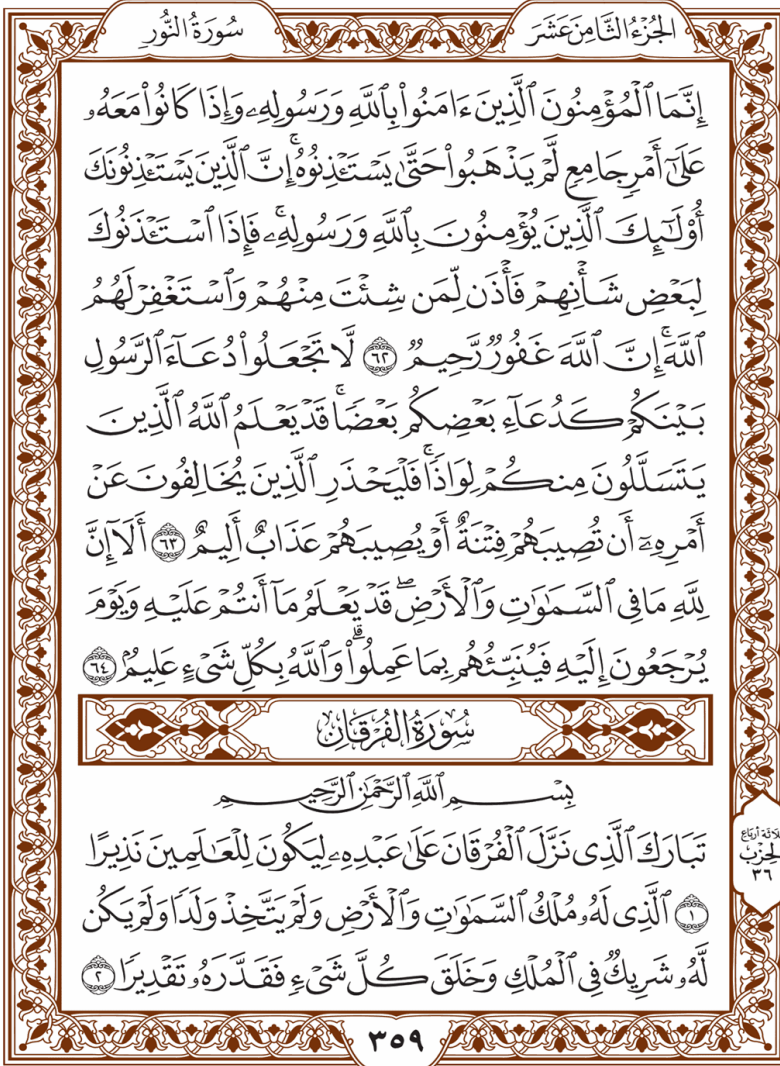 الجُزْءُ الثَّامِنَ عَشَرَ
سُورَةُ النُّورِ
إِنَّمَا ٱلْمُؤْمِنُونَ ٱلَّذِينَ ءَامَنُوا۟ بِٱللَّهِ وَرَسُولِهِۦ وَإِذَا كَانُوا۟ مَعَهُۥ
عَلَىٰٓ أَمْرٍ جَامِعٍ لَّمْ يَذْهَبُوا۟ حَتَّىٰ يَسْتَـْٔذِنُوهُ ۚ إِنَّ ٱلَّذِينَ يَسْتَـْٔذِنُونَكَ
أُو۟لَـٰٓئِكَ ٱلَّذِينَ يُؤْمِنُونَ بِٱللَّهِ وَرَسُولِهِۦ ۚ فَإِذَا ٱسْتَـْٔذَنُوكَ
لِبَعْضِ شَأْنِهِمْ فَأْذَن لِّمَن شِئْتَ مِنْهُمْ وَٱسْتَغْفِرْ لَهُمُ
ٱللَّهَ ۚ إِنَّ ٱللَّهَ غَفُورٌ رَّحِيمٌ ٦٢ لَّا تَجْعَلُوا۟ دُعَآءَ ٱلرَّسُولِ
بَيْنَكُمْ كَدُعَآءِ بَعْضِكُم بَعْضًا ۚ قَدْ يَعْلَمُ ٱللَّهُ ٱلَّذِينَ
يَتَسَلَّلُونَ مِنكُمْ لِوَاذًا ۚ فَلْيَحْذَرِ ٱلَّذِينَ يُخَالِفُونَ عَنْ
أَمْرِهِۦٓ أَن تُصِيبَهُمْ فِتْنَةٌ أَوْ يُصِيبَهُمْ عَذَابٌ أَلِيمٌ ٦٣ أَلَآ إِنَّ
لِلَّهِ مَا فِى ٱلسَّمَـٰوَٰتِ وَٱلْأَرْضِ ۖ قَدْ يَعْلَمُ مَآ أَنتُمْ عَلَيْهِ وَيَوْمَ
يُرْجَعُونَ إِلَيْهِ فَيُنَبِّئُهُم بِمَا عَمِلُوا۟ ۗ وَٱللَّهُ بِكُلِّ شَىْءٍ عَلِيمٌۢ ٦٤
سُورَةُ الفُرْقَانِ
بِسْمِ ٱللَّهِ ٱلرَّحْمَـٰنِ ٱلرَّحِيمِ
تَبَارَكَ ٱلَّذِى نَزَّلَ ٱلْفُرْقَانَ عَلَىٰ عَبْدِهِۦ لِيَكُونَ لِلْعَـٰلَمِينَ نَذِيرًا
١ ٱلَّذِى لَهُۥ مُلْكُ ٱلسَّمَـٰوَٰتِ وَٱلْأَرْضِ وَلَمْ يَتَّخِذْ وَلَدًا وَلَمْ يَكُن
لَّهُۥ شَرِيكٌ فِى ٱلْمُلْكِ وَخَلَقَ كُلَّ شَىْءٍ فَقَدَّرَهُۥ تَقْدِيرًا ٢
أرباع
الحِزْب
٣٦
٣٥٩